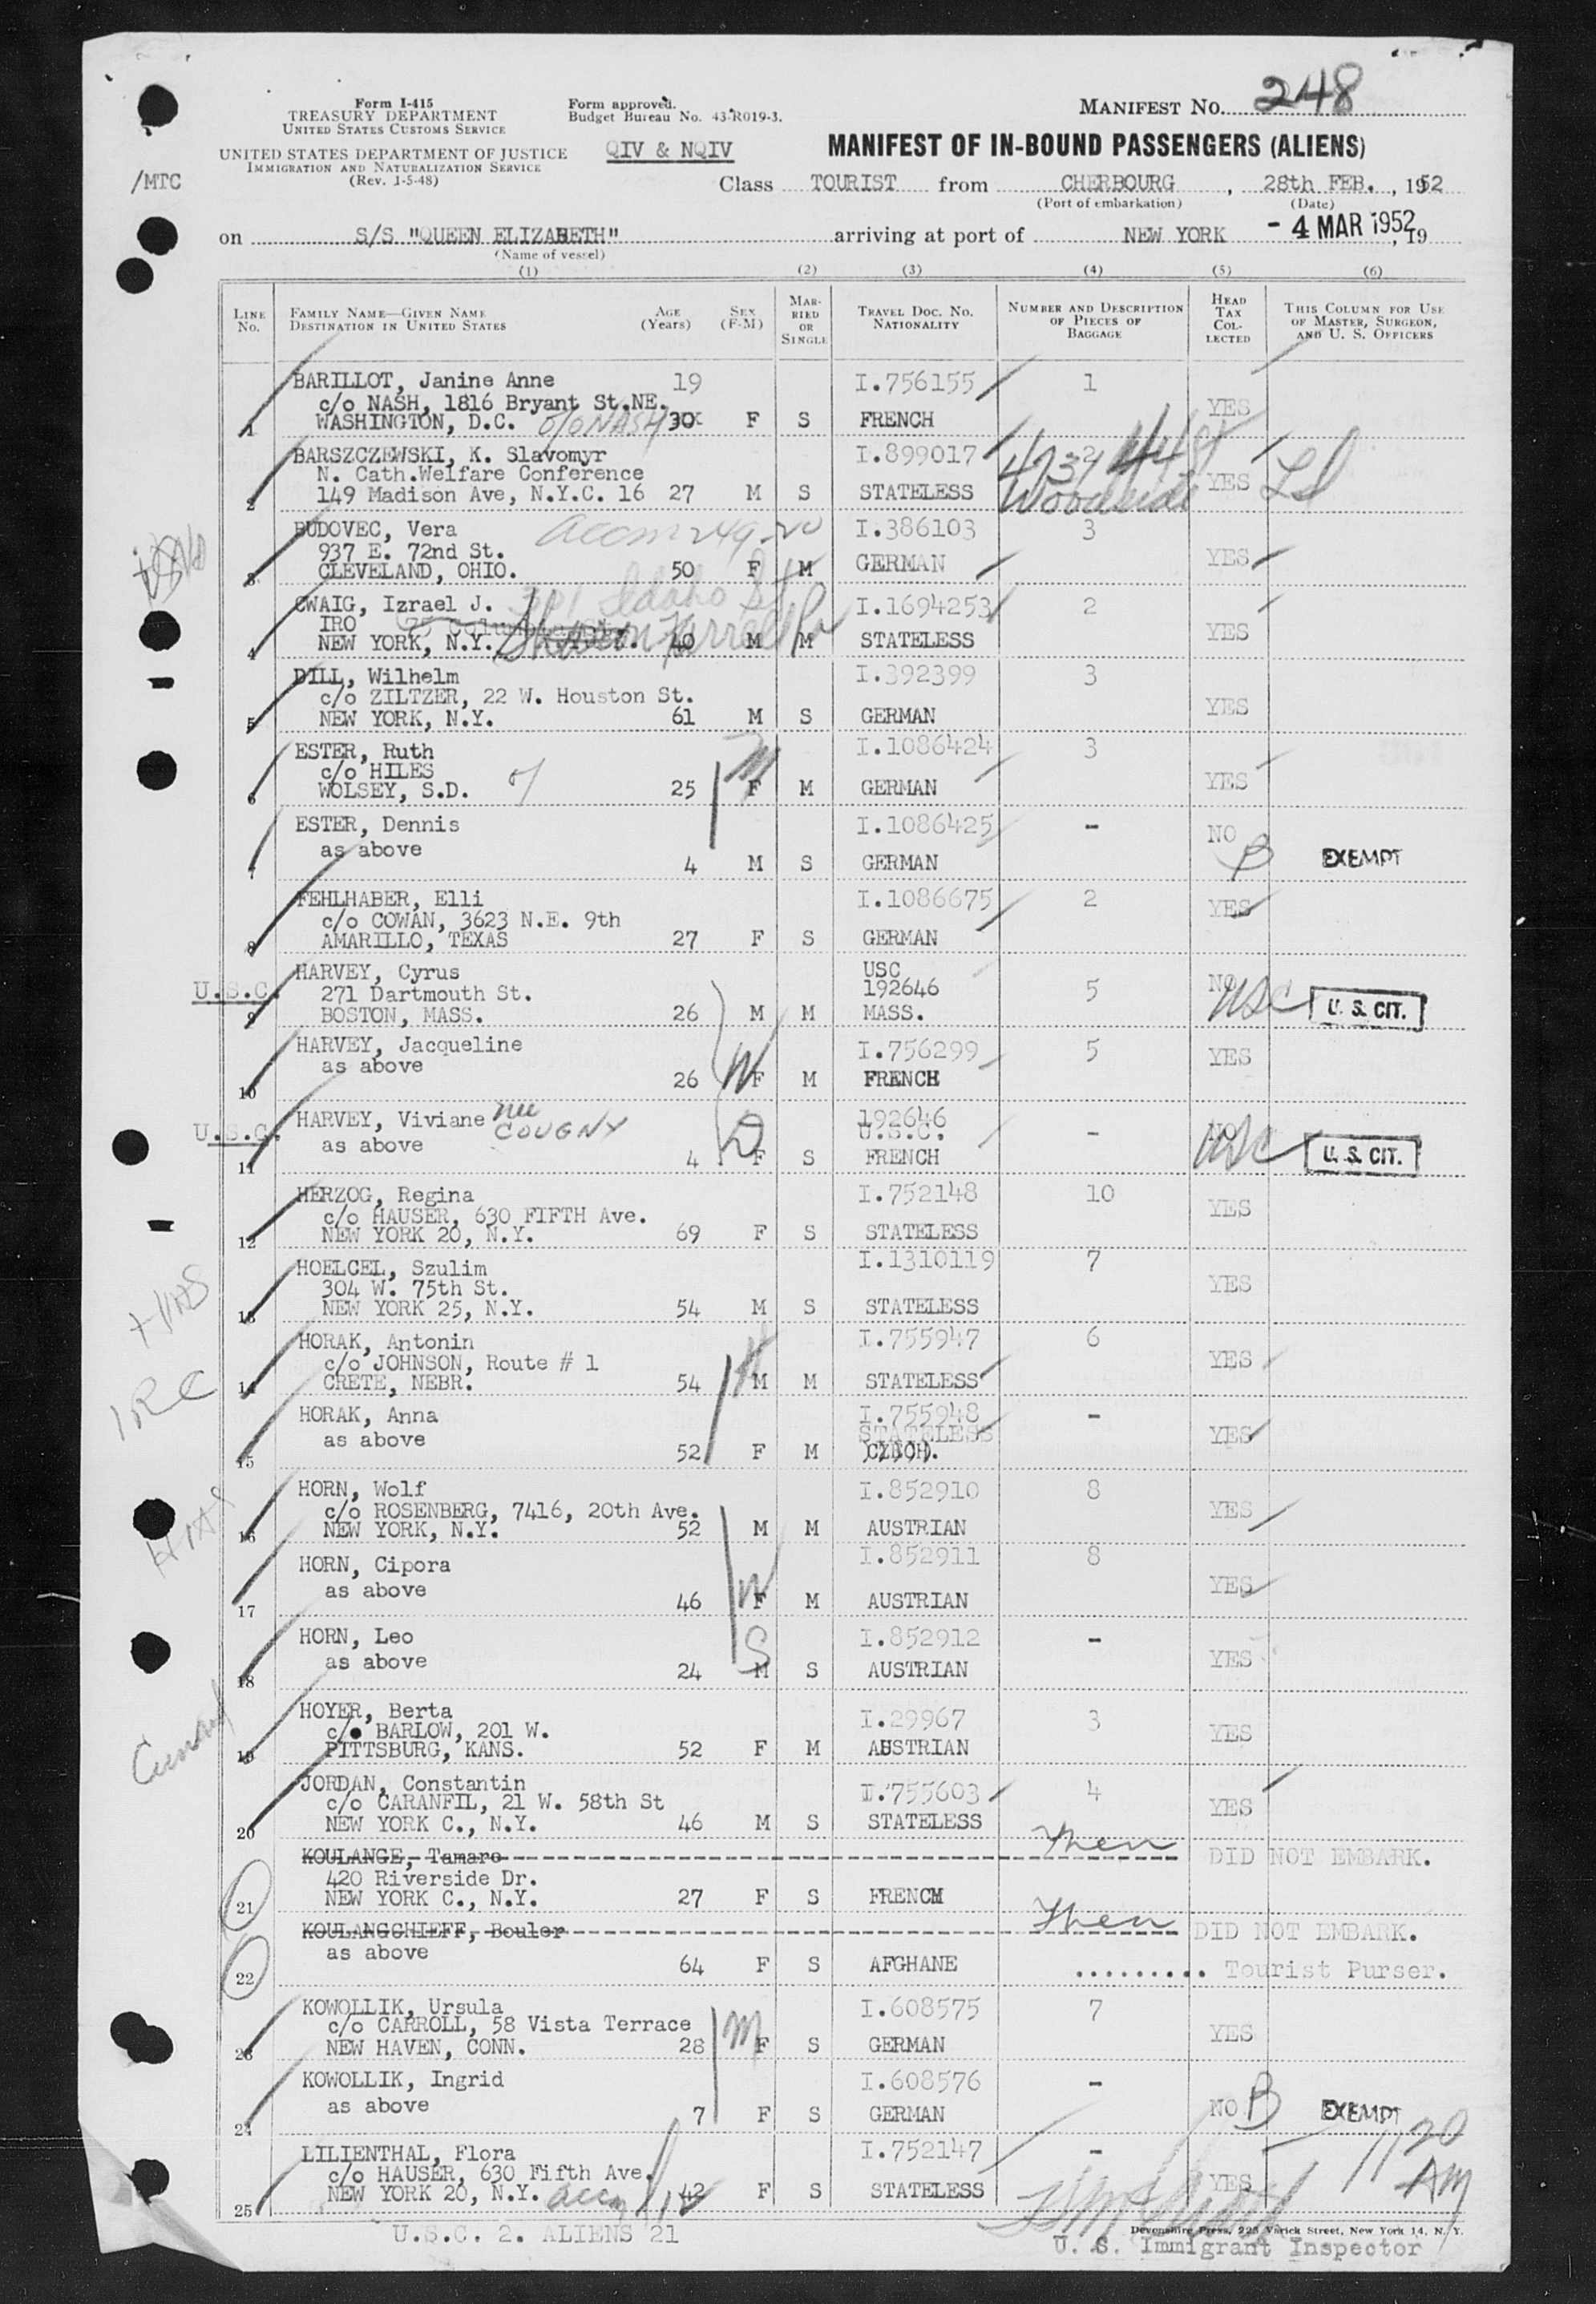 Form I-415
TREASURY DEPARTMENT
UNITED STATES CUSTOMS SERVICE
UNITED STATES DEPARTMENT OF JUSTICE
IMMIGRATION AND NATURALIZATION SERVICE
(Rev. 1-5-48)
/MTC
Form approved.
Budget Bureau No. 43-R019-3.
QIV & NQIV
MANIFEST NO. 248
MANIFEST OF IN-BOUND PASSENGERS (ALIENS)
Class TOURIST from CHERBOURG, 28th FEB., 1952
(Port of embarkation) (Date)
on S/S "QUEEN ELIZABETH" arriving at port of NEW YORK - 4 MAR 1952, 19
(Name of vessel)
(1) (2) (3) (4) (5) (6)
LINE No. FAMILY NAME—GIVEN NAME DESTINATION IN UNITED STATES AGE (Years) SEX (F-M) MARRIED OR SINGLE TRAVEL DOC. NO. NATIONALITY NUMBER AND DESCRIPTION OF PIECES OF BAGGAGE HEAD TAX COLLECTED THIS COLUMN FOR USE OF MASTER, SURGEON, AND U. S. OFFICERS
BARILLOT, Janine Anne 19 I.756155 1
c/o NASH, 1816 Bryant St.NE. YES
1 WASHINGTON, D.C. c/o NASH 30 F S FRENCH
BARSZCZEWSKI, K. Slavomyr I.899017 2 4737 44 St
N. Cath.Welfare Conference YES
2 149 Madison Ave, N.Y.C. 16 27 M S STATELESS Woodside
BUDOVEC, Vera accom 249-20 I.386103 3
937 E. 72nd St. YES
3 CLEVELAND, OHIO. 50 F M GERMAN
CWAIG, Izrael J. 301 Idaho St I.1694253 2
IRO YES
4 NEW YORK, N.Y. 40 M M STATELESS
DILL, Wilhelm I.392399 3
c/o ZILTZER, 22 W. Houston St. YES
5 NEW YORK, N.Y. 61 M S GERMAN
ESTER, Ruth I.1086424 3
c/o HILES YES
6 WOLSEY, S.D. 25 M F M GERMAN
ESTER, Dennis I.1086425 - NO
as above B EXEMPT
7 4 M S GERMAN
FEHLHABER, Elli I.1086675 2 YES
c/o COWAN, 3623 N.E. 9th
8 AMARILLO, TEXAS 27 F S GERMAN
HARVEY, Cyrus USC
U.S.C. 271 Dartmouth St. 192646 5 NO USC U. S. CIT.
9 BOSTON, MASS. 26 M M MASS.
HARVEY, Jacqueline I.756299 5 YES
as above
10 26 W F M FRENCH
HARVEY, Viviane nee COUGNY 192646
U.S.C. U.S.C. - NO USC U. S. CIT.
as above
11 4 D F S FRENCH
HERZOG, Regina I.752148 10
c/o HAUSER, 630 FIFTH Ave. YES
12 NEW YORK 20, N.Y. 69 F S STATELESS
HOELCEL, Szulim I.1310119 7
304 W. 75th St. YES
13 NEW YORK 25, N.Y. 54 M S STATELESS
+HIAS
HORAK, Antonin I.755947 6
c/o JOHNSON, Route # 1 YES
14 CRETE, NEBR. 54 M M STATELESS
IRC
HORAK, Anna I.755948 -
as above STATELESS YES
15 52 F M CZECH.
HORN, Wolf I.852910 8
c/o ROSENBERG, 7416, 20th Ave. YES
16 NEW YORK, N.Y. 52 M M AUSTRIAN
HIAS
HORN, Cipora I.852911 8
as above YES
17 46 W F M AUSTRIAN
HORN, Leo I.852912 -
as above YES
18 24 S M S AUSTRIAN
HOYER, Berta I.29967 3
c/o BARLOW, 201 W. YES
19 PITTSBURG, KANS. 52 F M AUSTRIAN
Cunard
JORDAN, Constantin I.755603 4
c/o CARANFIL, 21 W. 58th St YES
20 NEW YORK C., N.Y. 46 M S STATELESS
KOULANGE, Tamare DID NOT EMBARK.
420 Riverside Dr.
21 NEW YORK C., N.Y. 27 F S FRENCH
KOULANGCHIEFF, Bouler DID NOT EMBARK.
as above
22 64 F S AFGHANE ......... Tourist Purser.
KOWOLLIK, Ursula I.608575 7
c/o CARROLL, 58 Vista Terrace YES
23 NEW HAVEN, CONN. 28 M F S GERMAN
KOWOLLIK, Ingrid I.608576 -
as above NO B EXEMPT
24 7 F S GERMAN
LILIENTHAL, Flora I.752147 - 1120 AM
c/o HAUSER, 630 Fifth Ave. YES
25 NEW YORK 20, N.Y. 42 F S STATELESS
U.S.C. 2. ALIENS 21
Devonshire Press, 225 Varick Street, New York 14, N. Y.
U. S. Immigrant Inspector